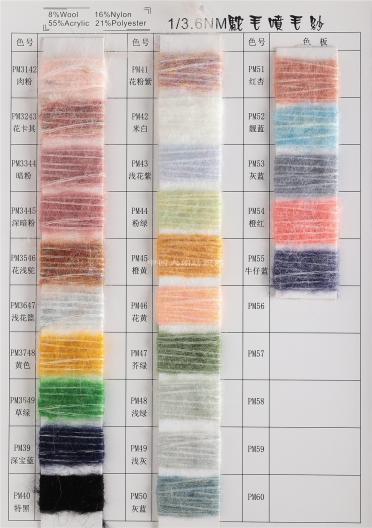 8%Wool 16%Nylon
55%Acrylic 21%Polyester
1/3.6NM駝毛噴毛紗
色号
PM3142
肉粉
PM3243
花卡其
PM3344
暗粉
PM3445
深暗粉
PM3546
花浅驼
PM3647
浅花蓝
PM3748
黄色
PM3849
草绿
PM39
深宝蓝
PM40
特黑
色号
PM41
花粉紫
PM42
米白
PM43
浅花紫
PM44
粉绿
PM45
橙黄
PM46
花黄
PM47
芥绿
PM48
浅绿
PM49
浅灰
PM50
灰蓝
色板
PM51
红杏
PM52
靓蓝
PM53
灰蓝
PM54
橙红
PM55
牛仔蓝
PM56
PM57
PM58
PM59
PM60